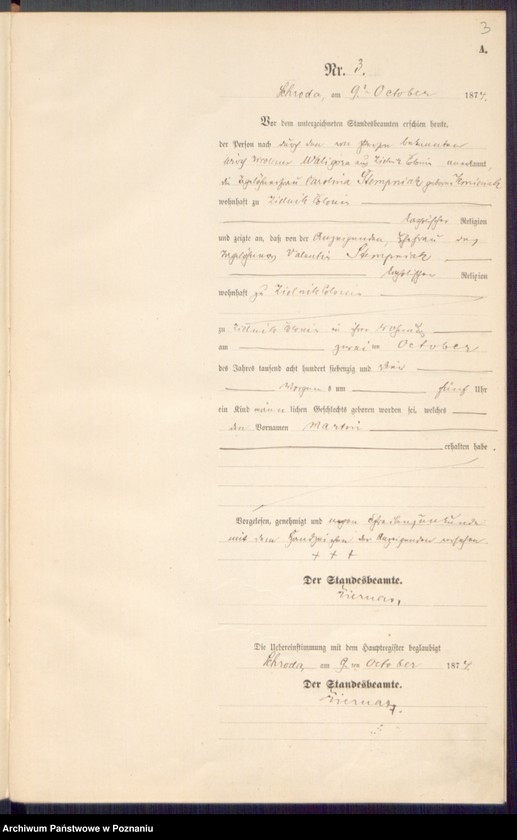 3
A.
Nr. 3.
Schroda, am 9t October 1874.
Vor dem unterzeichneten Standesbeamten erschien heute,
der Person nach durch den von Person bekannten
Waligora aus anerkannt,
die Tagelöhnerfrau Carolina Stempniak geborene
wohnhaft zu
katholischer Religion
und zeigte an, daß von der Anzeigenden, Ehefrau des
Tagelöhners Valentin Stempniak
katholischer Religion
wohnhaft zu
zu in ihrer Wohnung
am zwei ten October
des Jahres tausend acht hundert siebenzig und vier
Morgens um fünf Uhr
ein Kind männlichen Geschlechts geboren worden sei, welches
den Vornamen Martin
erhalten habe.
Vorgelesen, genehmigt und wegen Schreibensunkunde
mit dem Handzeichen der Anzeigenden versehen.
+ + +
Der Standesbeamte.
Die Uebereinstimmung mit dem Hauptregister beglaubigt
Schroda, am 9ten October 1874
Der Standesbeamte.
Archiwum Państwowe w Poznaniu